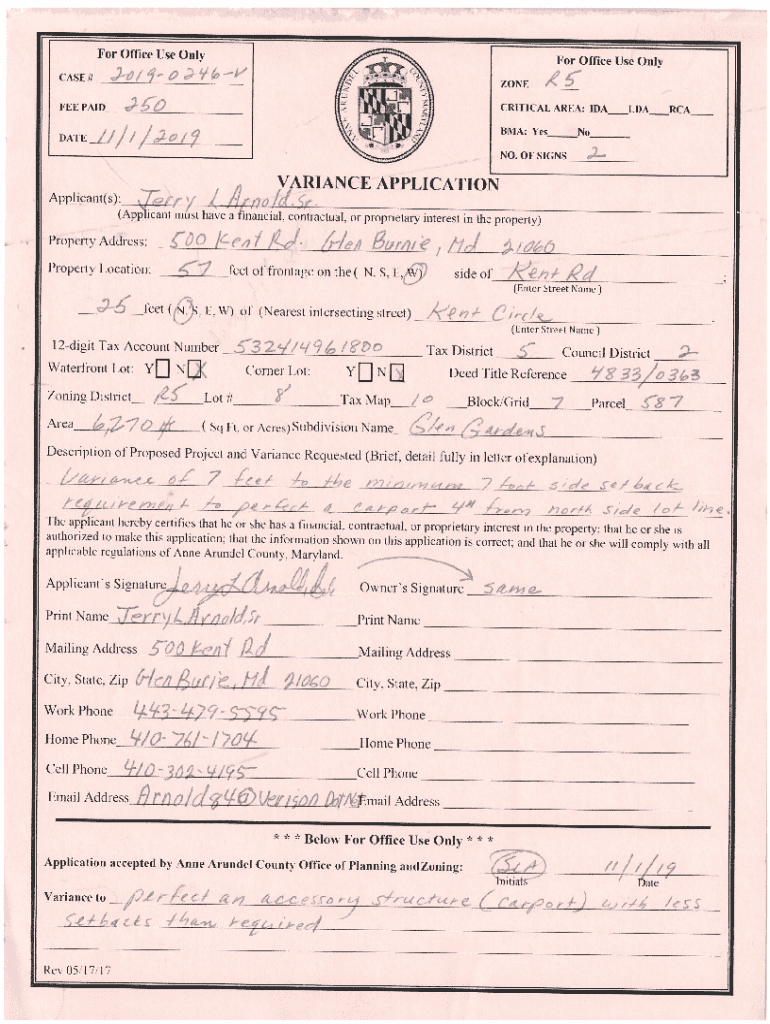 For Office Use Only
CASE # 2019-0246-V
FEE PAID 250
DATE 11/1/2019
ANNE ARUNDEL COUNTY MARYLAND
For Office Use Only
ZONE R5
CRITICAL AREA: IDA___LDA___RCA___
BMA: Yes____No______
NO. OF SIGNS 2
VARIANCE APPLICATION
Applicant(s): Jerry L Arnold, Sr.
(Applicant must have a financial, contractual, or proprietary interest in the property)
Property Address: 500 Kent Rd. Glen Burnie, Md 21060
Property Location: 57 feet of frontage on the ( N, S, E, W) side of Kent Rd ;
(Enter Street Name )
25 feet ( N, S, E, W) of (Nearest intersecting street) Kent Circle
(Enter Street Name )
12-digit Tax Account Number 532414961800 Tax District 5 Council District 2
Waterfront Lot: Y N X Corner Lot: Y N X Deed Title Reference 4833/0363
Zoning District R5 Lot # 8 Tax Map 10 Block/Grid 7 Parcel 587
Area 6,270 ( Sq Ft. or Acres) Subdivision Name Glen Gardens
Description of Proposed Project and Variance Requested (Brief, detail fully in letter of explanation)
Variance of 7 feet to the minimum 7 foot side setback
requirement to perfect a carport 4" from north side lot line.
The applicant hereby certifies that he or she has a financial, contractual, or proprietary interest in the property; that he or she is
authorized to make this application; that the information shown on this application is correct; and that he or she will comply with all
applicable regulations of Anne Arundel County, Maryland.
Applicant's Signature Jerry L Arnold Owner's Signature same
Print Name Jerry L. Arnold, Sr Print Name
Mailing Address 500 Kent Rd Mailing Address
City, State, Zip Glen Burie, Md 21060 City, State, Zip
Work Phone 443-479-5595 Work Phone
Home Phone 410-761-1704 Home Phone
Cell Phone 410-302-4195 Cell Phone
Email Address Arnold84@Verison Dot Net Email Address
* * * Below For Office Use Only * * *
Application accepted by Anne Arundel County Office of Planning and Zoning: 11/1/19
Initials Date
Variance to perfect an accessory structure (carport) with less
setbacks than required
Rev 05/17/17